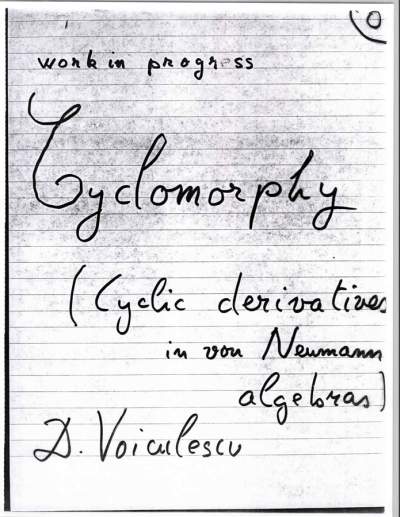 0
work in progress
Cyclomorphy
(Cyclic derivatives
in von Neumann
algebras)
D. Voiculescu